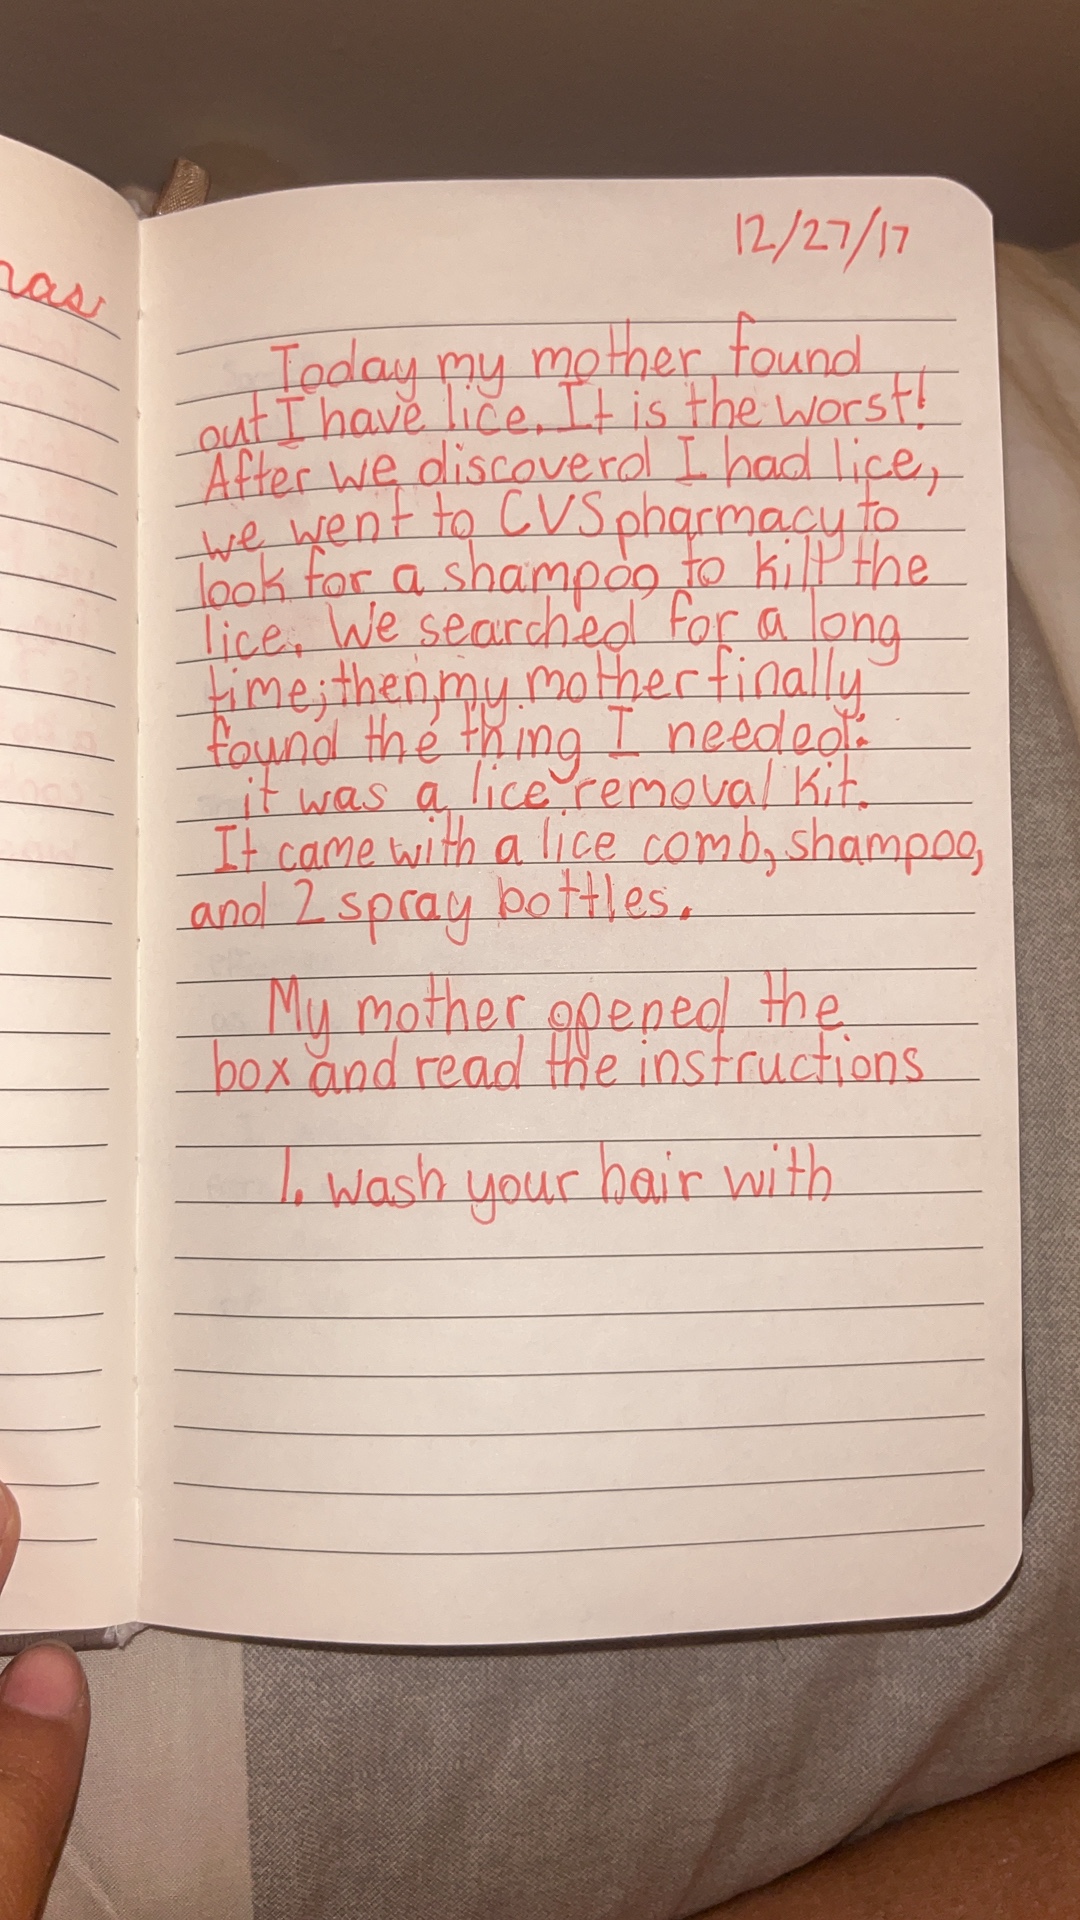 12/27/17
Today my mother found
out I have lice. It is the worst!
After we discoverd I had lice,
we went to CVS pharmacy to
look for a shampoo to kill the
lice. We searched for a long
time; then, my mother finally
found the thing I needed:
it was a lice removal kit.
It came with a lice comb, shampoo,
and 2 spray bottles.
My mother opened the
box and read the instructions
1. wash your hair with